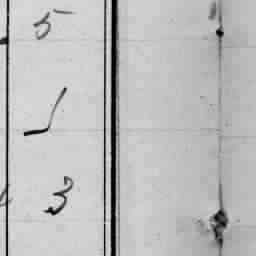 5
1
3